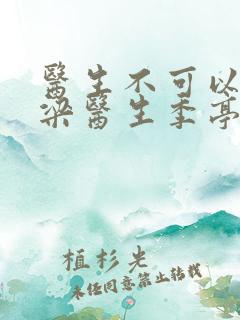 醫生不可以
梁醫生季亭
植杉先
未經同意禁止轉載